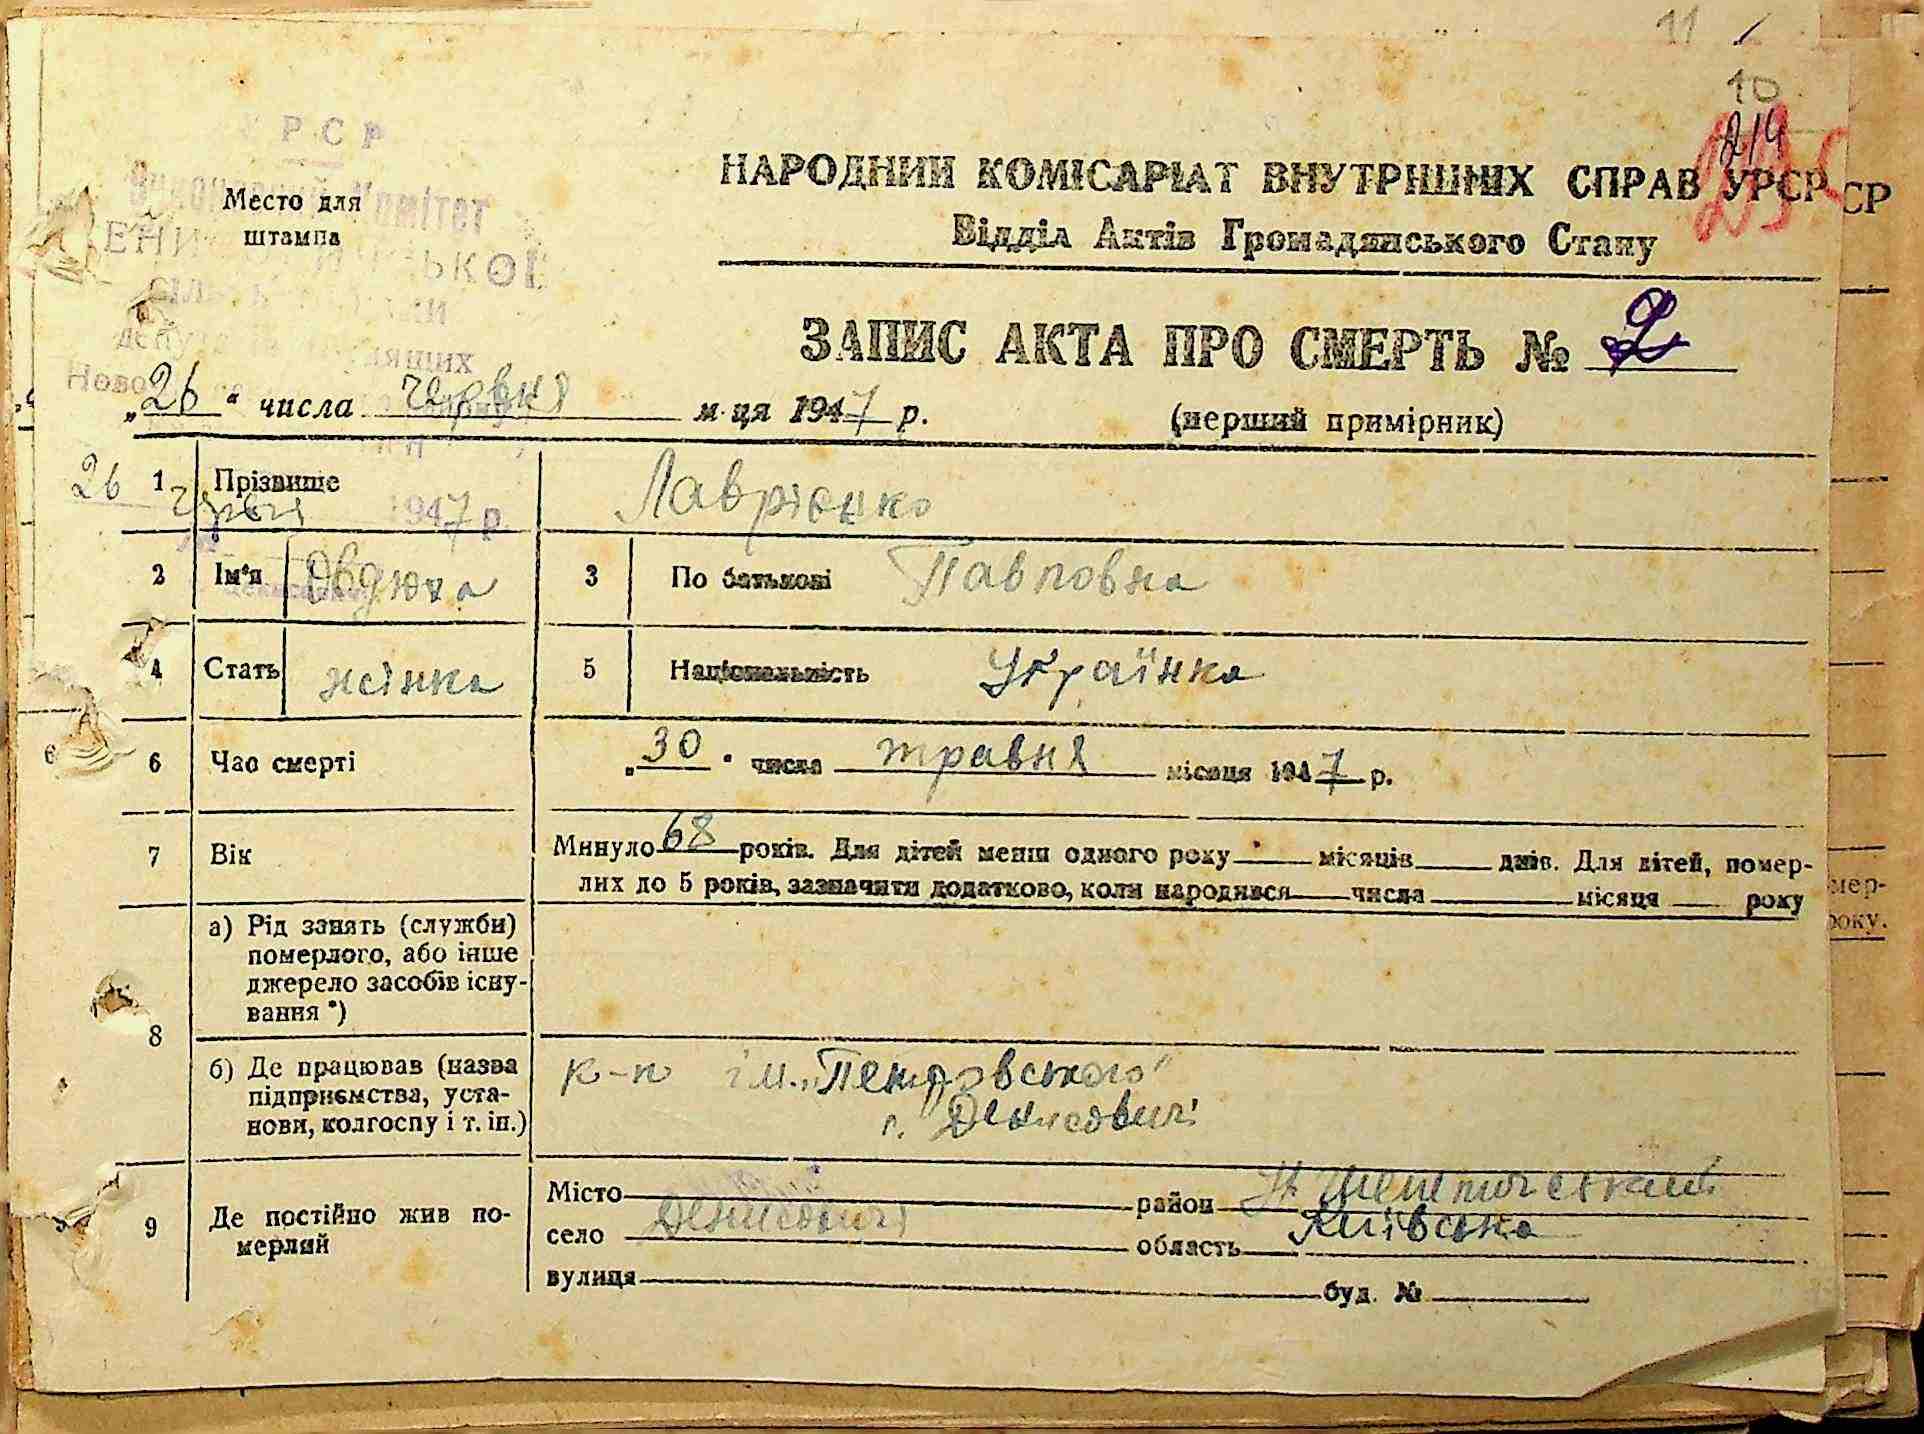 11
10
214
УРСР
Виконавчий Комітет
Место для
штампа
НАРОДНИЙ КОМІСАРІАТ ВНУТРІШНІХ СПРАВ УРСР СР
Відділ Актів Громадянського Стану
ЗАПИС АКТА ПРО СМЕРТЬ № 2
„26“ числа червня м-ця 1947 р. (перший примірник)
26 червня 1947 р.
1 Прізвище Лаврієнко
2 Ім'я Овдюха 3 По батькові Павловна
4 Стать жінка 5 Національність Українка
6 Час смерті „30“ числа травня місяця 1947 р.
7 Вік Минуло 68 років. Для дітей менш одного року місяців днів. Для дітей, помер-
лих до 5 років, зазначити додатково, коли народився числа місяця року
8 а) Рід занять (служби)
померлого, або інше
джерело засобів існу-
вання *)
б) Де працював (назва
підприємства, уста-
нови, колгоспу і т. ін.)
к-п ім. „Петровського“
с. Денисовичі
9 Де постійно жив по-
мерлий
Місто район Н. Шепеличський
село Денисовичі область Київська
вулиця буд. №
мер-
року.